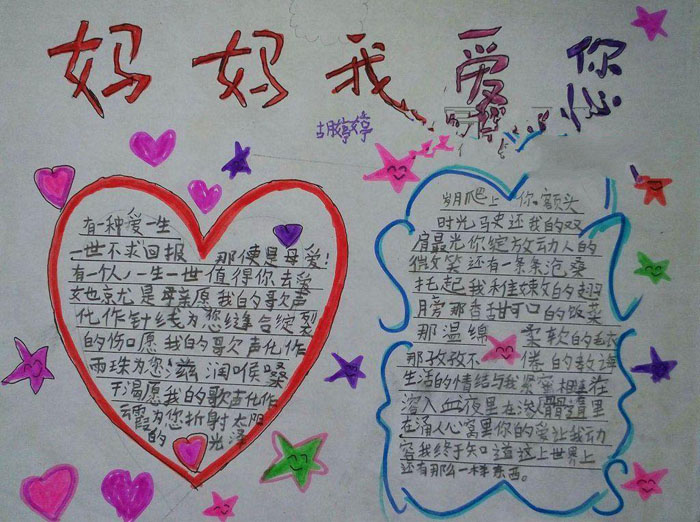 妈妈我爱你
胡婷婷
有一种爱一生
一世不求回报 那便是母爱!
有一个人,一生一世值得你去爱
她京尤是母亲愿我的歌声
化作针线为您缝合绽裂
的伤口愿我的歌声化作
雨珠为您滋润喉嗓
干渴愿我的歌声化作
云霞为您折射太阳
的光泽
岁月爬上你额头
时光马史还我的双
肩最光你绽放动人的
微笑还有一条条沧桑
托起我稚嫩的翅
膀那香甜可口的饭菜
那温绵 柔软的毛衣
那孜孜不 倦的教诲
生活的情结与我紧密相
溶入血液里在渗入骨髓里
在涌入心窝里你的爱让我动
容我终于知道这上世界上
还有那么一样东西。